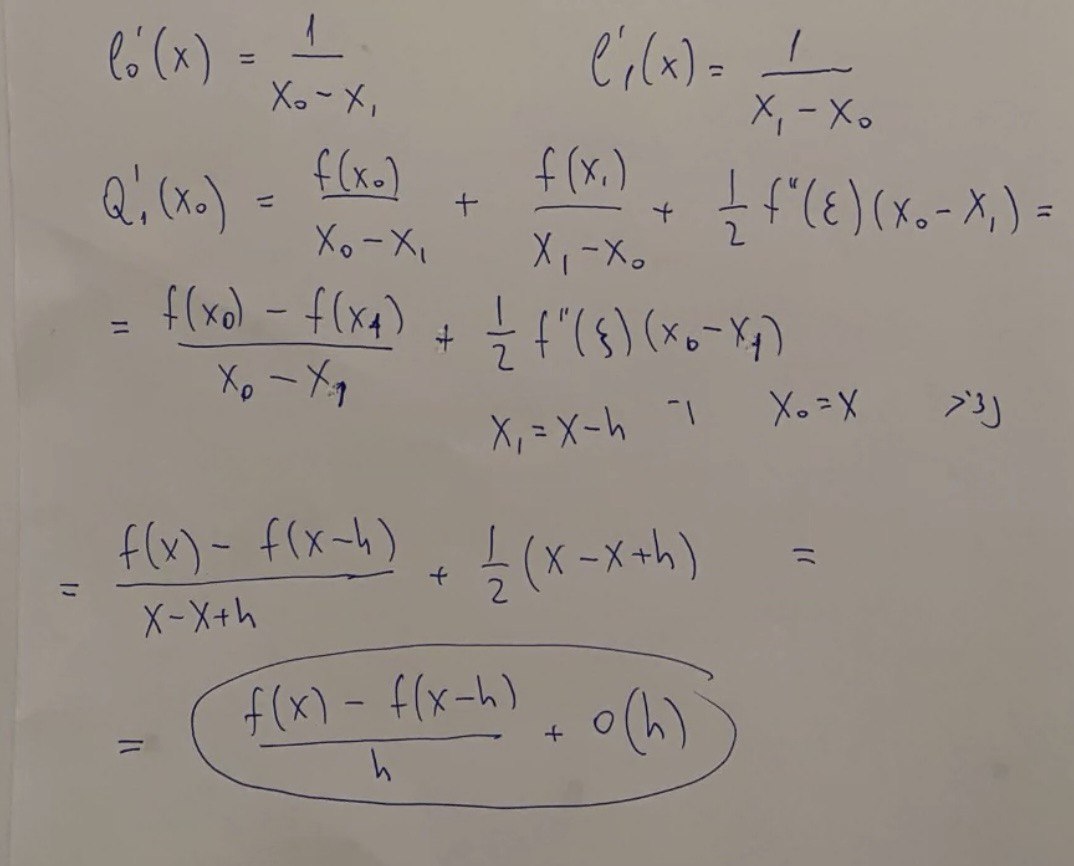 ℓ₀'(x) = 1/(x₀ - x₁) ℓ'₁(x) = 1/(x₁ - x₀)
Q'₁(x₀) = f(x₀)/(x₀ - x₁) + f(x₁)/(x₁ - x₀) + 1/2 f"(ξ)(x₀ - x₁) =
= (f(x₀) - f(x₁))/(x₀ - x₁) + 1/2 f"(ξ)(x₀ - x₁)
נציב x₀ = x ו- x₁ = x - h
= (f(x) - f(x-h))/(x-x+h) + 1/2 (x - x + h) =
= (f(x) - f(x-h))/h + o(h)